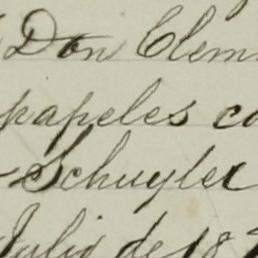 Don Clem
papeles co
Schuyler
Julio de 18